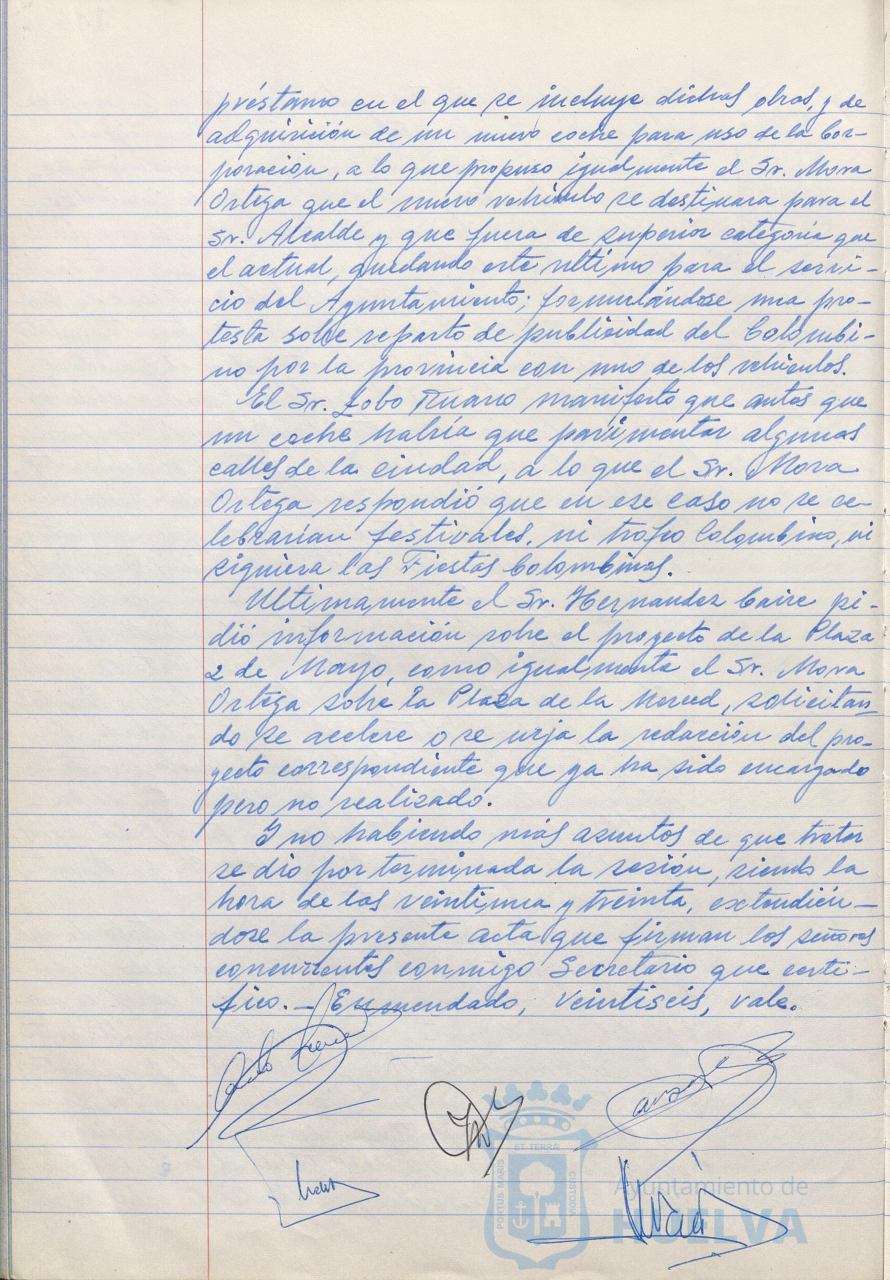 préstamo en el que se incluye dichas obras, y de
adquisición de un nuevo coche para uso de la Cor-
poración, a lo que propuso igualmente el Sr. Mora
Ortega que el nuevo vehículo se destinara para el
Sr. Alcalde y que fuera de superior categoría que
el actual, quedando este ultimo para el servi-
cio del Ayuntamiento; formulándose una pro-
testa sobre reparto de publicidad del Colombi-
no por la provincia con uno de los vehículos.
El Sr. Lobo Ruano manifestó que antes que
un coche habría que pavimentar algunas
calles de la ciudad, a lo que el Sr. Mora
Ortega respondió que en ese caso no se ce-
lebrarían festivales, ni trofeo Colombino, ni
siquiera las Fiestas Colombinas.
Ultimamente el Sr. Hernandez Caire pi-
dió información sobre el proyecto de la Plaza
2 de Mayo, como igualmente el Sr. Mora
Ortega sobre la Plaza de la Merced, solicitan-
do se acelere o se urja la redacción del pro-
yecto correspondiente que ya ha sido encargado
pero no realizado.
Y no habiendo más asuntos de que tratar
se dio por terminada la sesión, siendo la
hora de las veintiuna y treinta, extendién-
dose la presente acta que firman los señores
concurrentes conmigo Secretario que certi-
fico. — Enmendado, veintiseis, vale.
PORTUS MARIS ET TERRÆ CUSTODIA
Ayuntamiento de
HUELVA